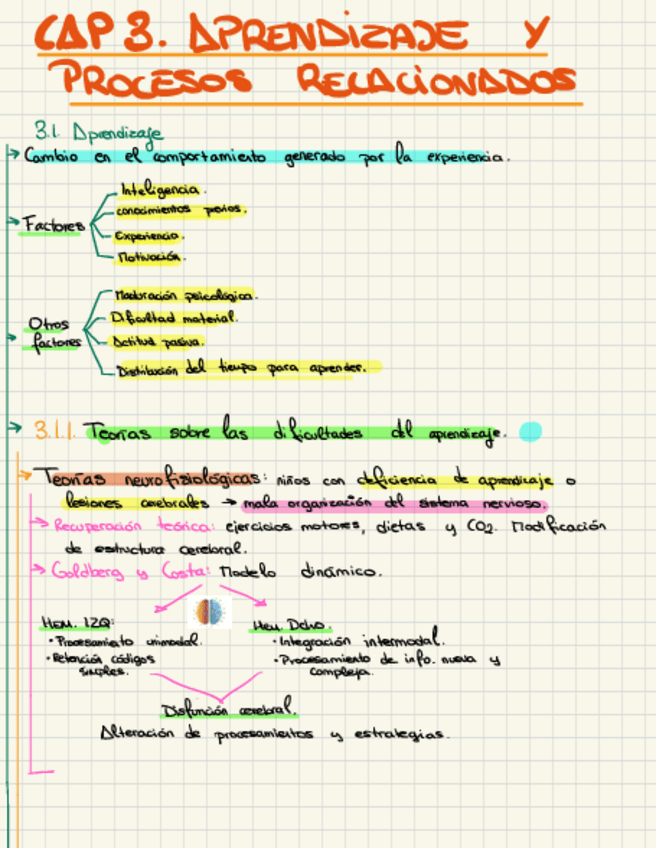 CAP 3. APRENDIZAJE Y
PROCESOS RELACIONADOS
3.1. Aprendizaje
→ Cambio en el comportamiento generado por la experiencia.
→ Factores
Inteligencia.
conocimientos previos.
Experiencia.
Motivación.
→ Otros factores
Maduración psicológica.
Dificultad material.
Actitud pasiva.
Distribución del tiempo para aprender.
→ 3.1.1. Teorías sobre las dificultades del aprendizaje.
→ Teorías neurofisiológicas: niños con deficiencia de aprendizaje o
lesiones cerebrales → mala organización del sistema nervioso.
→ Recuperación teórica: ejercicios motores, dietas y CO2. Modificación
de estructura cerebral.
→ Goldberg y Costa: Modelo dinámico.
Hem. IZQ:
• Procesamiento unimodal.
• Retención códigos
simples.
Hem. Dcho.
• Integración intermodal.
• Procesamiento de info. nueva y
compleja.
Disfunción cerebral.
Alteración de procesamientos y estrategias.